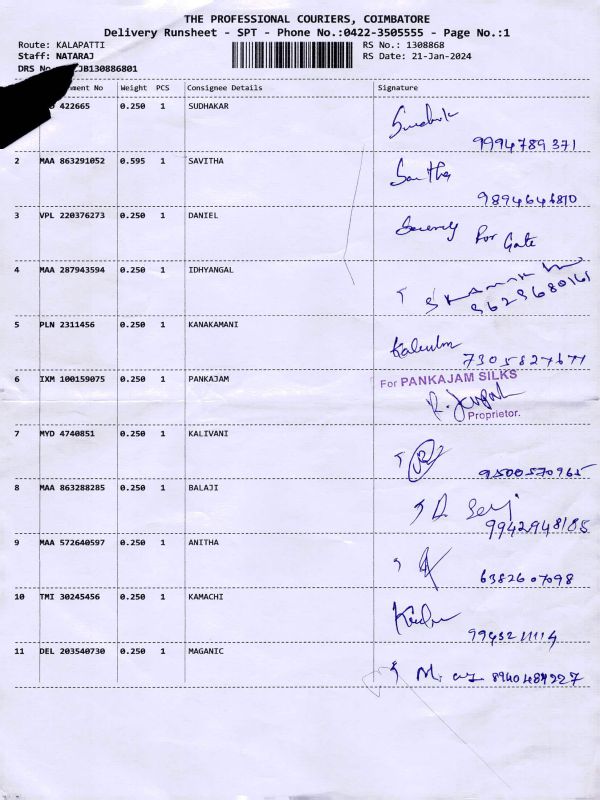 THE PROFESSIONAL COURIERS, COIMBATORE
Delivery Runsheet - SPT - Phone No.:0422-3505555 - Page No.:1
Route: KALAPATTI RS No.: 1308868
Staff: NATARAJ RS Date: 21-Jan-2024
DRS No JB130886801
ment No Weight PCS Consignee Details Signature
422665 0.250 1 SUDHAKAR
9994789371
2 MAA 863291052 0.595 1 SAVITHA Savitha
3 VPL 220376273 0.250 1 DANIEL Security For Gate
4 MAA 287943594 0.250 1 IDHYANGAL
5 PLN 2311456 0.250 1 KANAKAMANI
6 IXM 100159075 0.250 1 PANKAJAM For PANKAJAM SILKS
Proprietor.
7 MYD 4740851 0.250 1 KALIVANI
9500570965
8 MAA 863288285 0.250 1 BALAJI
9942948185
9 MAA 572640597 0.250 1 ANITHA
6382607098
10 TMI 30245456 0.250 1 KAMACHI
11 DEL 203540730 0.250 1 MAGANIC